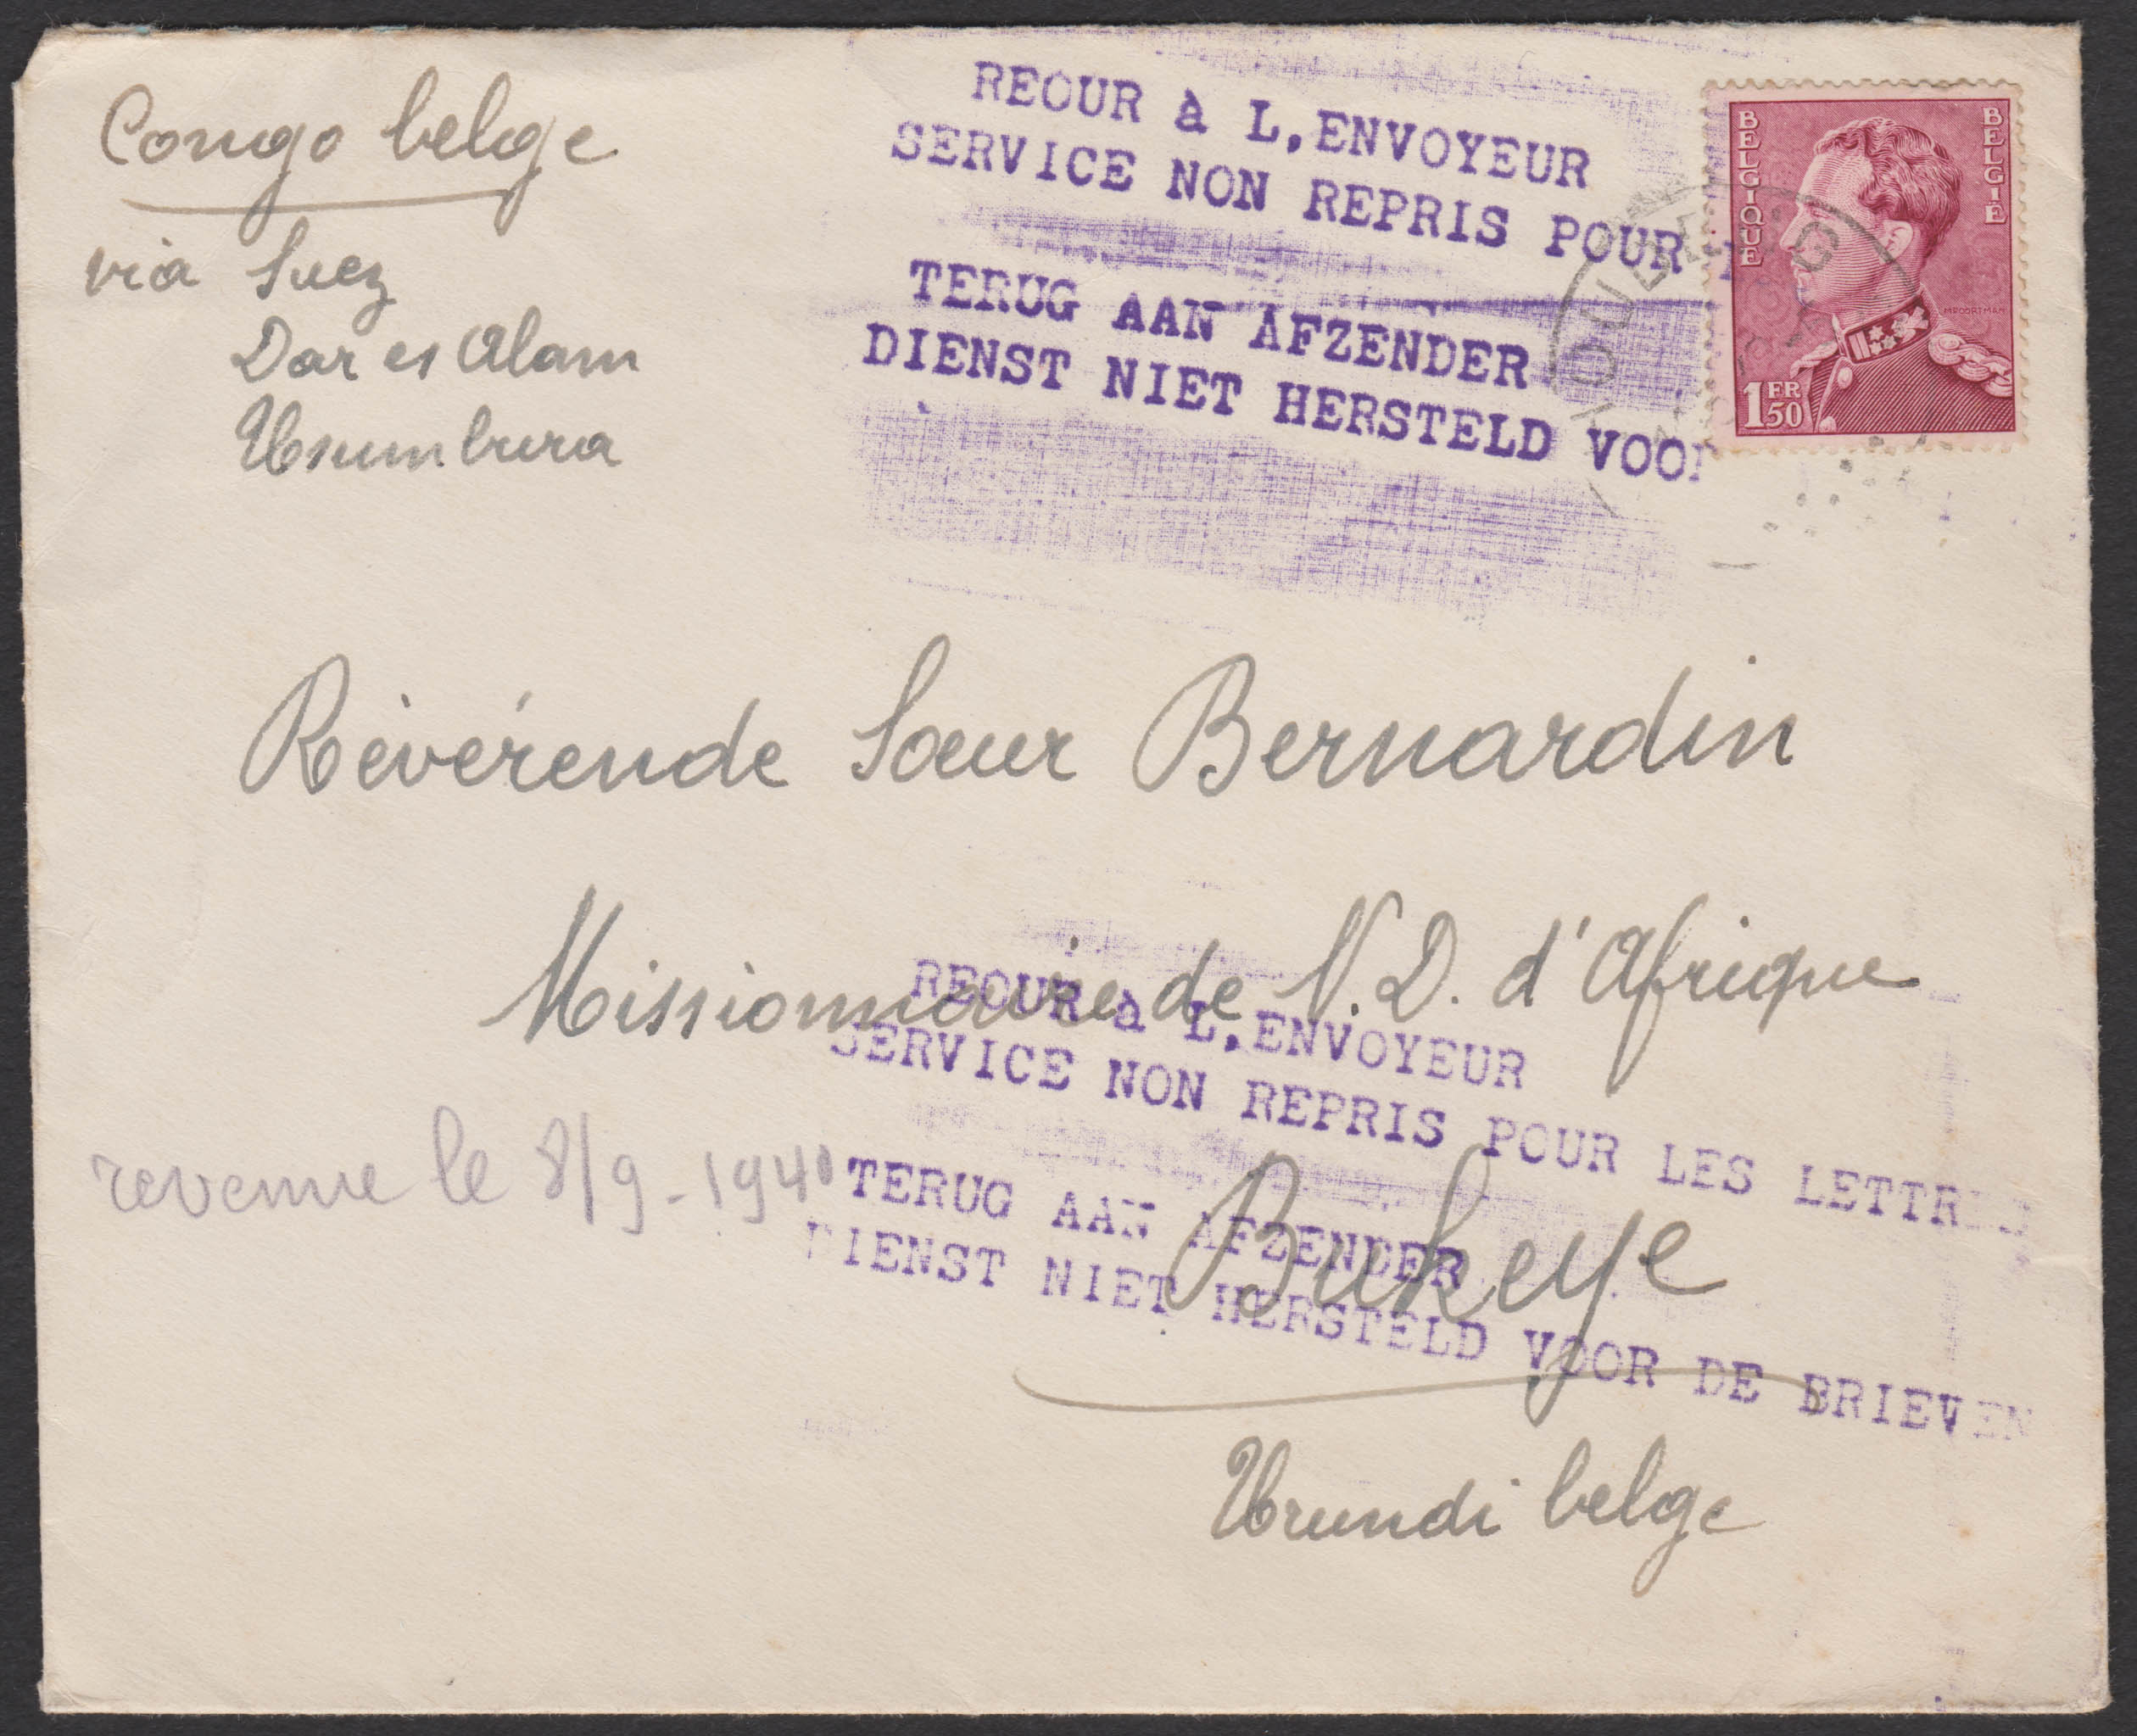 Congo belge
via Suez
Dar es Alam
Usumbura
REOUR à L,ENVOYEUR
SERVICE NON REPRIS POUR
TERUG AAN AFZENDER
DIENST NIET HERSTELD VOOR
BELGIQUE
BELGIË
MPOORTMAN
1FR50
Révérende Soeur Bernardin
Missionnaire de N.D. d'Afrique
REOUR à L,ENVOYEUR
SERVICE NON REPRIS POUR LES LETTRES
revenue le 8/9-1940
TERUG AAN AFZENDER
DIENST NIET HERSTELD VOOR DE BRIEVEN
Bukeye
Urundi belge